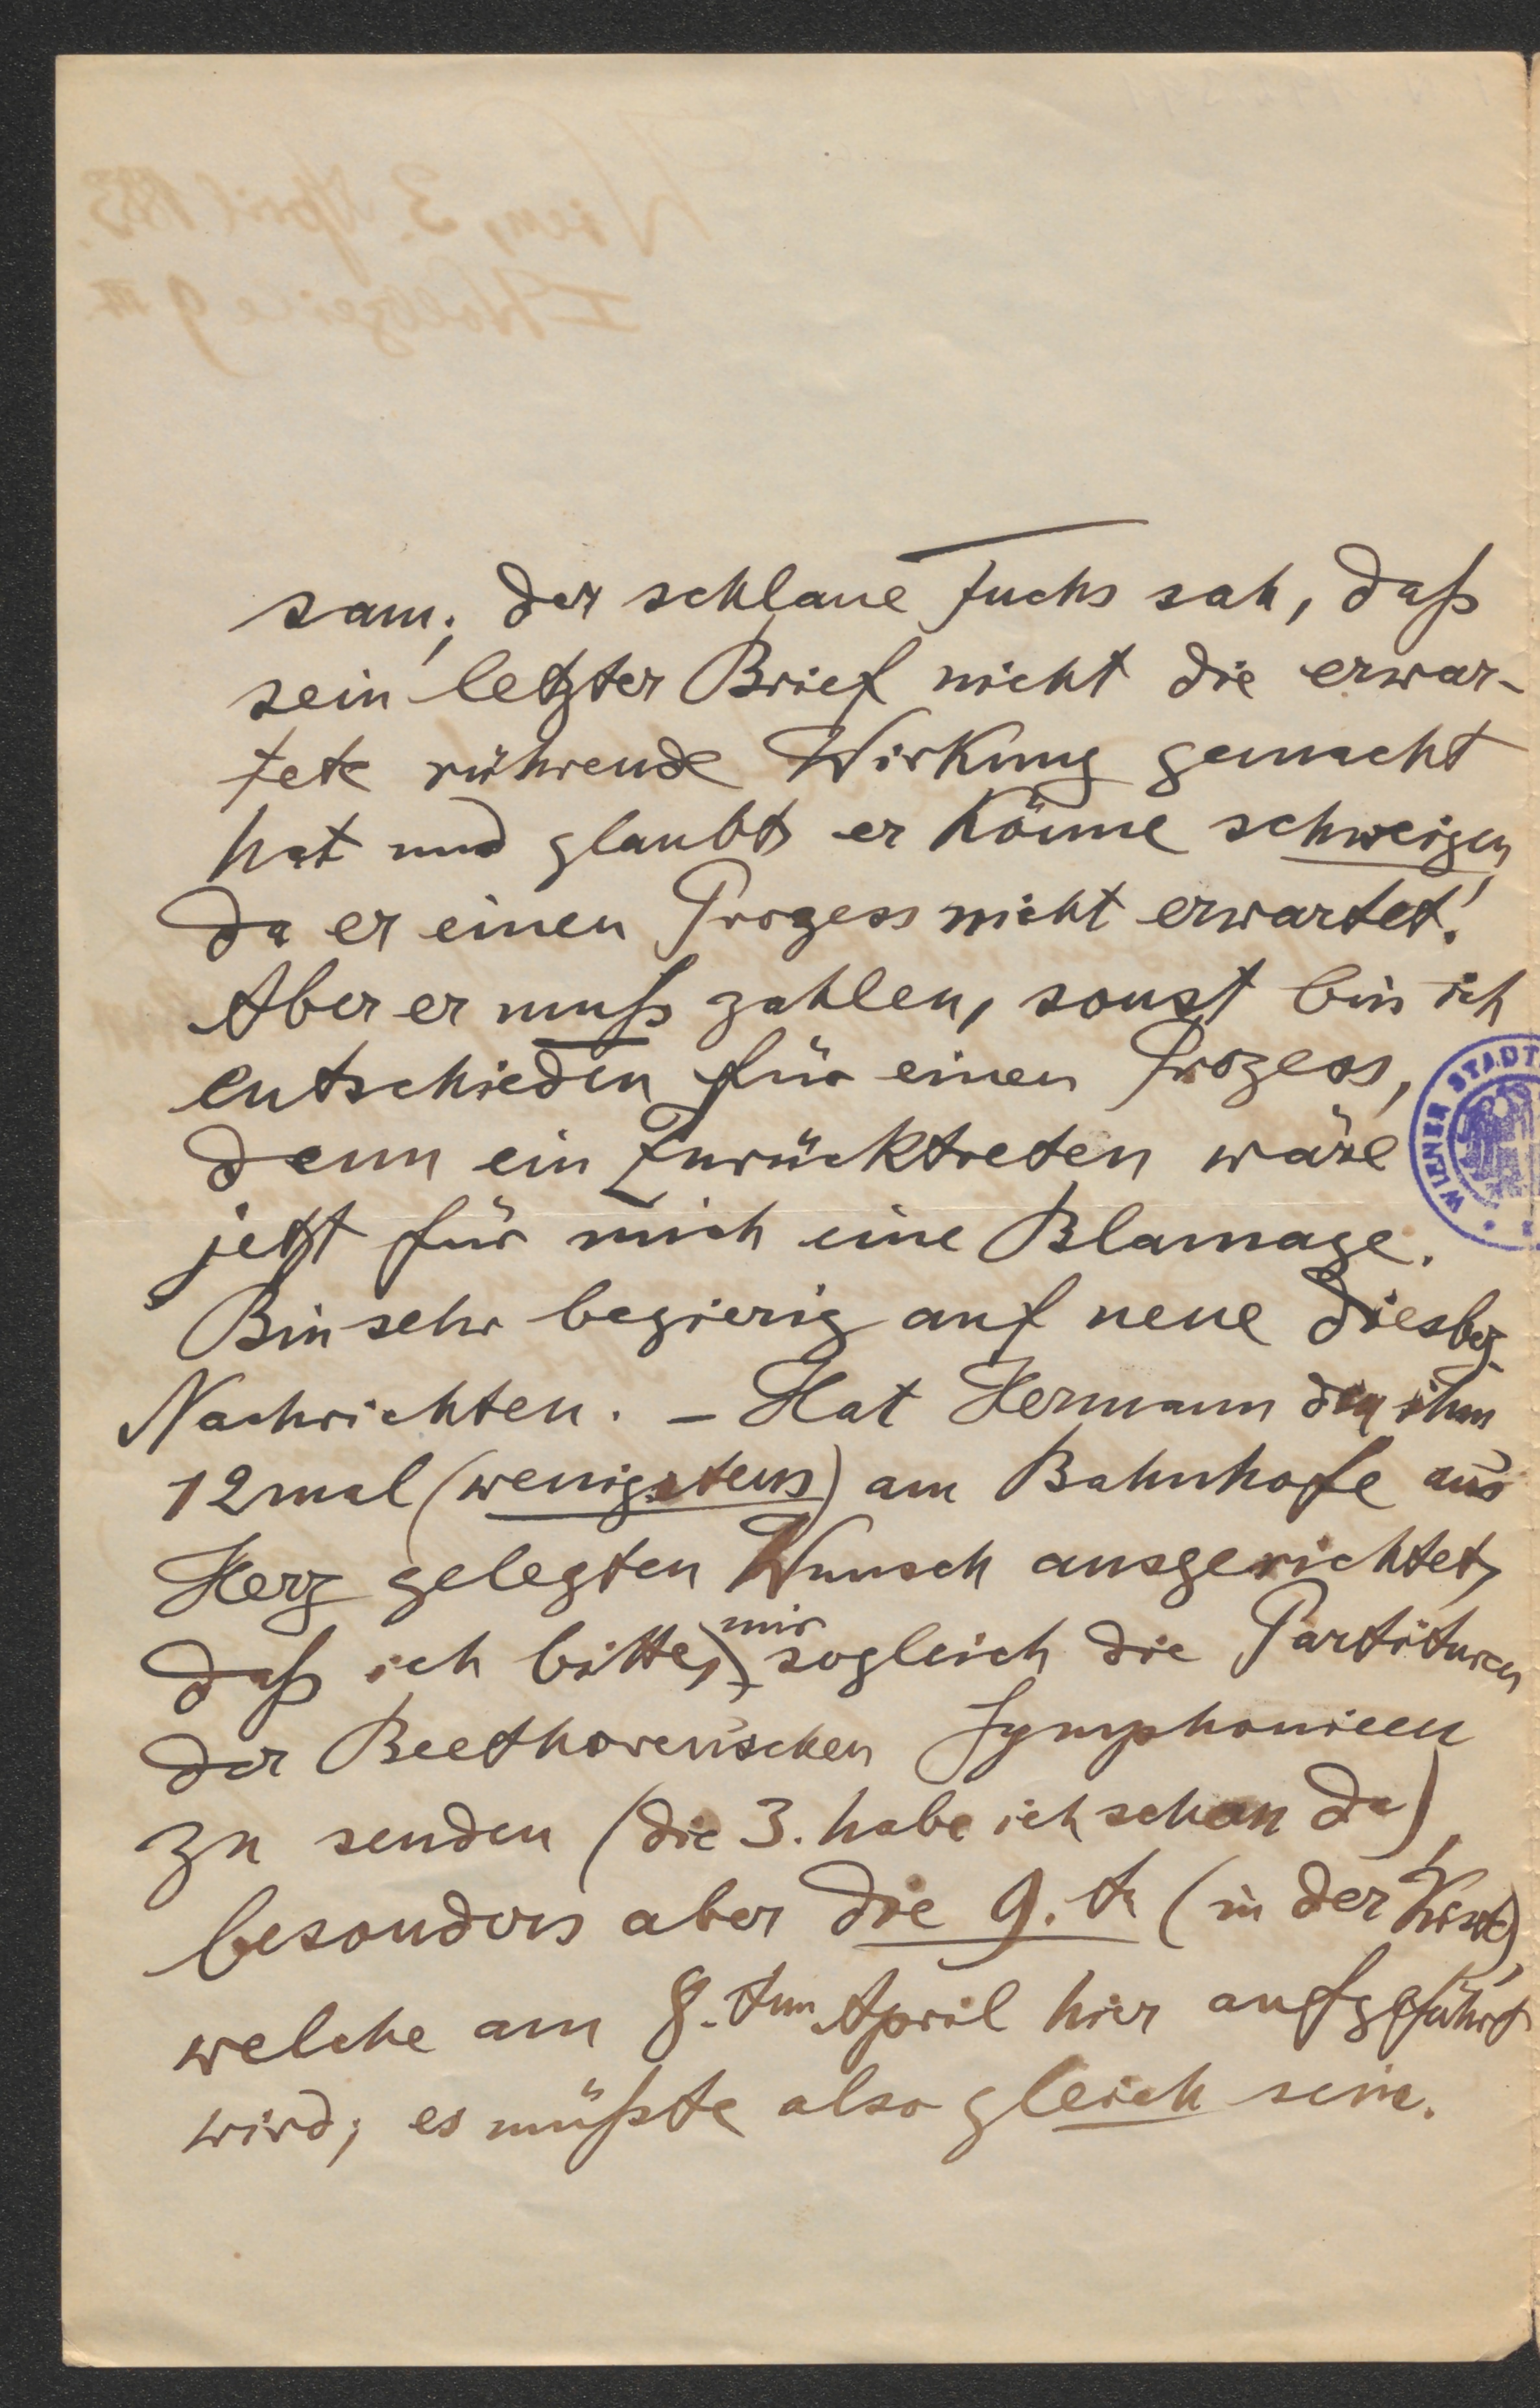 sam; der schlaue Fuchs sah, daß
sein letzter Brief nicht die erwar-
tete rührende Wirkung gemacht
hat und glaubt er könne schweigen,
da er einen Prozess nicht erwartet!
Aber er muß zahlen, sonst bin ich
entschieden für einen Prozess,
denn ein Zurücktreten wäre
jetzt für mich eine Blamage.
Bin sehr begierig auf neue diesbez.
Nachrichten. – Hat Hermann den ihm
12mal (wenigstens) am Bahnhofe ans
Herz gelegten Wunsch ausgerichtet,
daß ich bitte, mir sogleich die Partituren
der Beethoven'schen Symphonieen
zu senden (die 3. habe ich schon da),
besonders aber die 9.te (in der Kiste),
welche am 8.ten April hier aufgeführt
wird; es müßte also gleich sein.
WIENER STADT